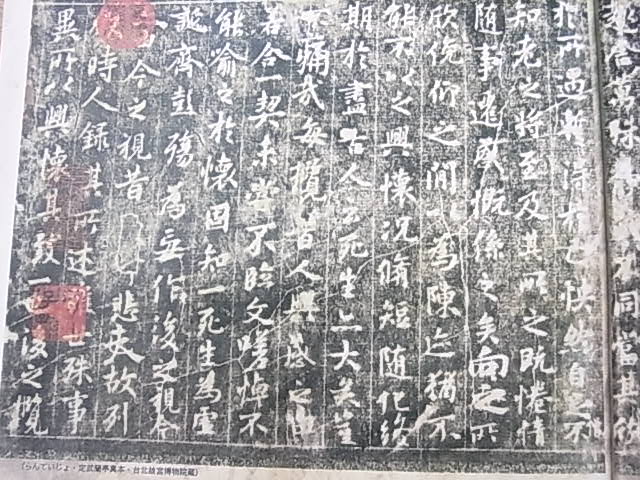 趣舍萬殊靜躁不同當其欣
於所遇暫得於己快然自足不
知老之將至及其所之既惓情
隨事遷感慨係之矣向之所
欣俛仰之間以為陳迹猶不
能不以之興懷況脩短隨化終
期於盡古人云死生亦大矣豈
不痛哉每攬昔人興感之由
若合一契未嘗不臨文嗟悼不
能喻之於懷固知一死生為虛
誕齊彭殤為妄作後之視今
亦今之視昔悲夫故列
時人錄其所述雖世殊事
異所以興懷其致一也後之攬
(らんていじょ・定武蘭亭真本・台北故宮博物院蔵)